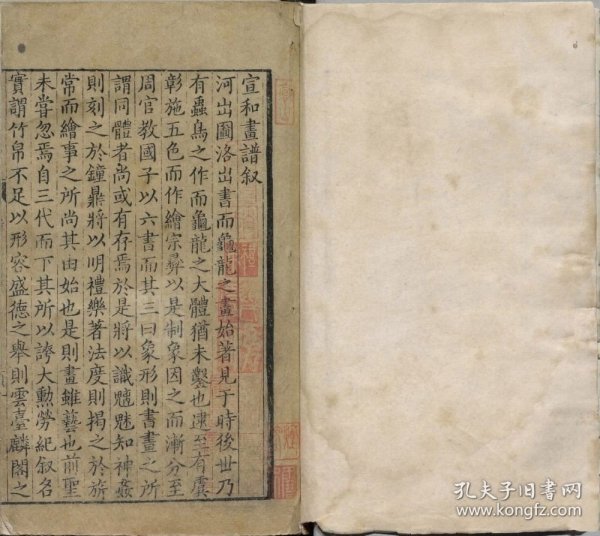 宣和畫譜叙
河出圖洛出書而龜龍之畫始著見于時後世乃
有蟲鳥之作而龜龍之大體猶未鑿也逮至有虞
彰施五色而作繪宗彞以是制象因之而漸分至
周官教國子以六書而其三曰象形則書畫之所
謂同體者尚或有存焉於是將以識魑魅知神姦
則刻之於鐘鼎將以明禮樂著法度則揭之於旂
常而繪事之所尚其由始也是則畫雖藝也前聖
未嘗忽焉自三代而下其所以誇大勳勞紀叙名
實謂竹帛不足以形容盛德之舉則雲臺麟閣之
孔夫子旧书网
www.kongfz.com